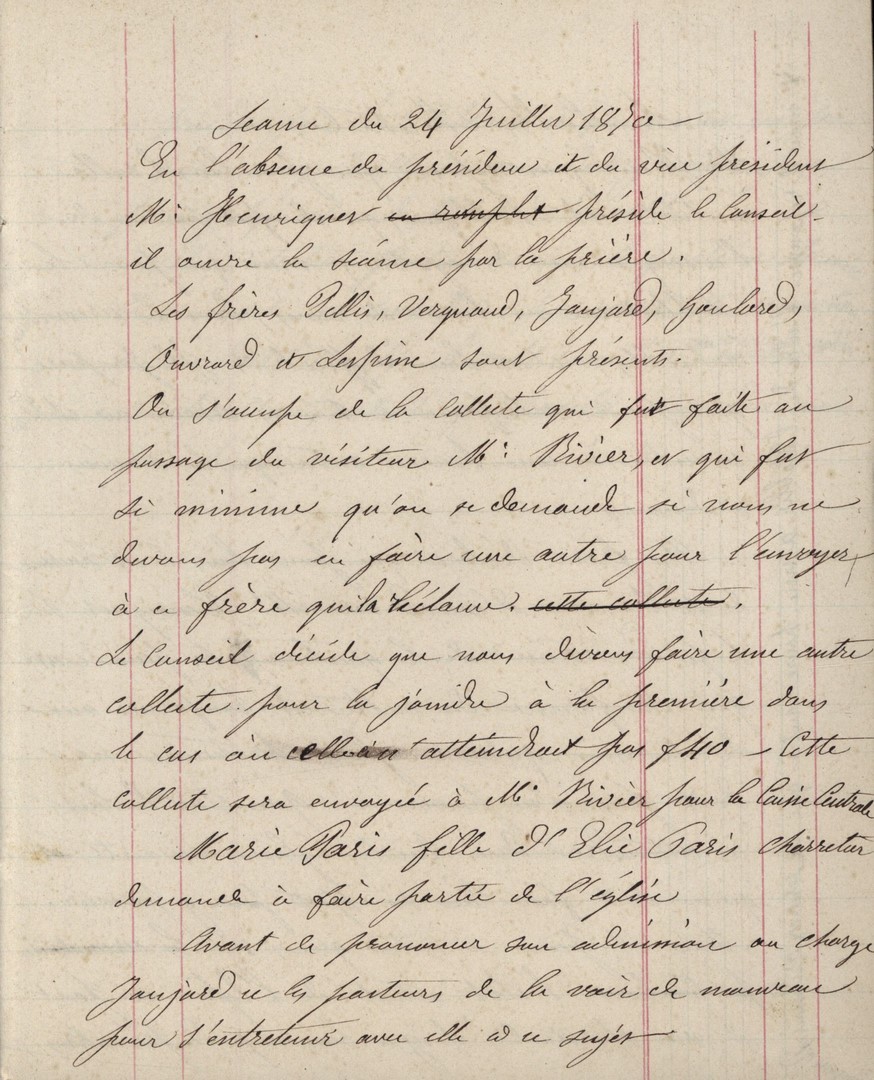 Séance du 24 Juillet 1870
En l'absence du président et du vice président
Mr. Henriquet en remplit préside le Conseil.
il ouvre la séance par la prière.
Les frères Pellis, Vergnaud, Jaujard, Goulard,
Ouvrard et Lespine sont présents.
On s'occupe de la collecte qui fut faite au
passage du visiteur Mr. Rivier, et qui fut
si minime qu'on se demande si nous ne
devons pas en faire une autre pour l'envoyer
à ce frère qui la réclame. cette collecte.
Le Conseil décide que nous devons faire une autre
collecte pour la joindre à la première dans
le cas où elle n'atteindrait pas f40 – Cette
collecte sera envoyée à Mr. Rivier pour la Caisse Centrale
Marie Paris fille d'Elie Paris charretier
demande à faire partie de l'église
Avant de prononcer son admission on charge
Jaujard et les pasteurs de la voir de nouveau
pour s'entretenir avec elle à ce sujet